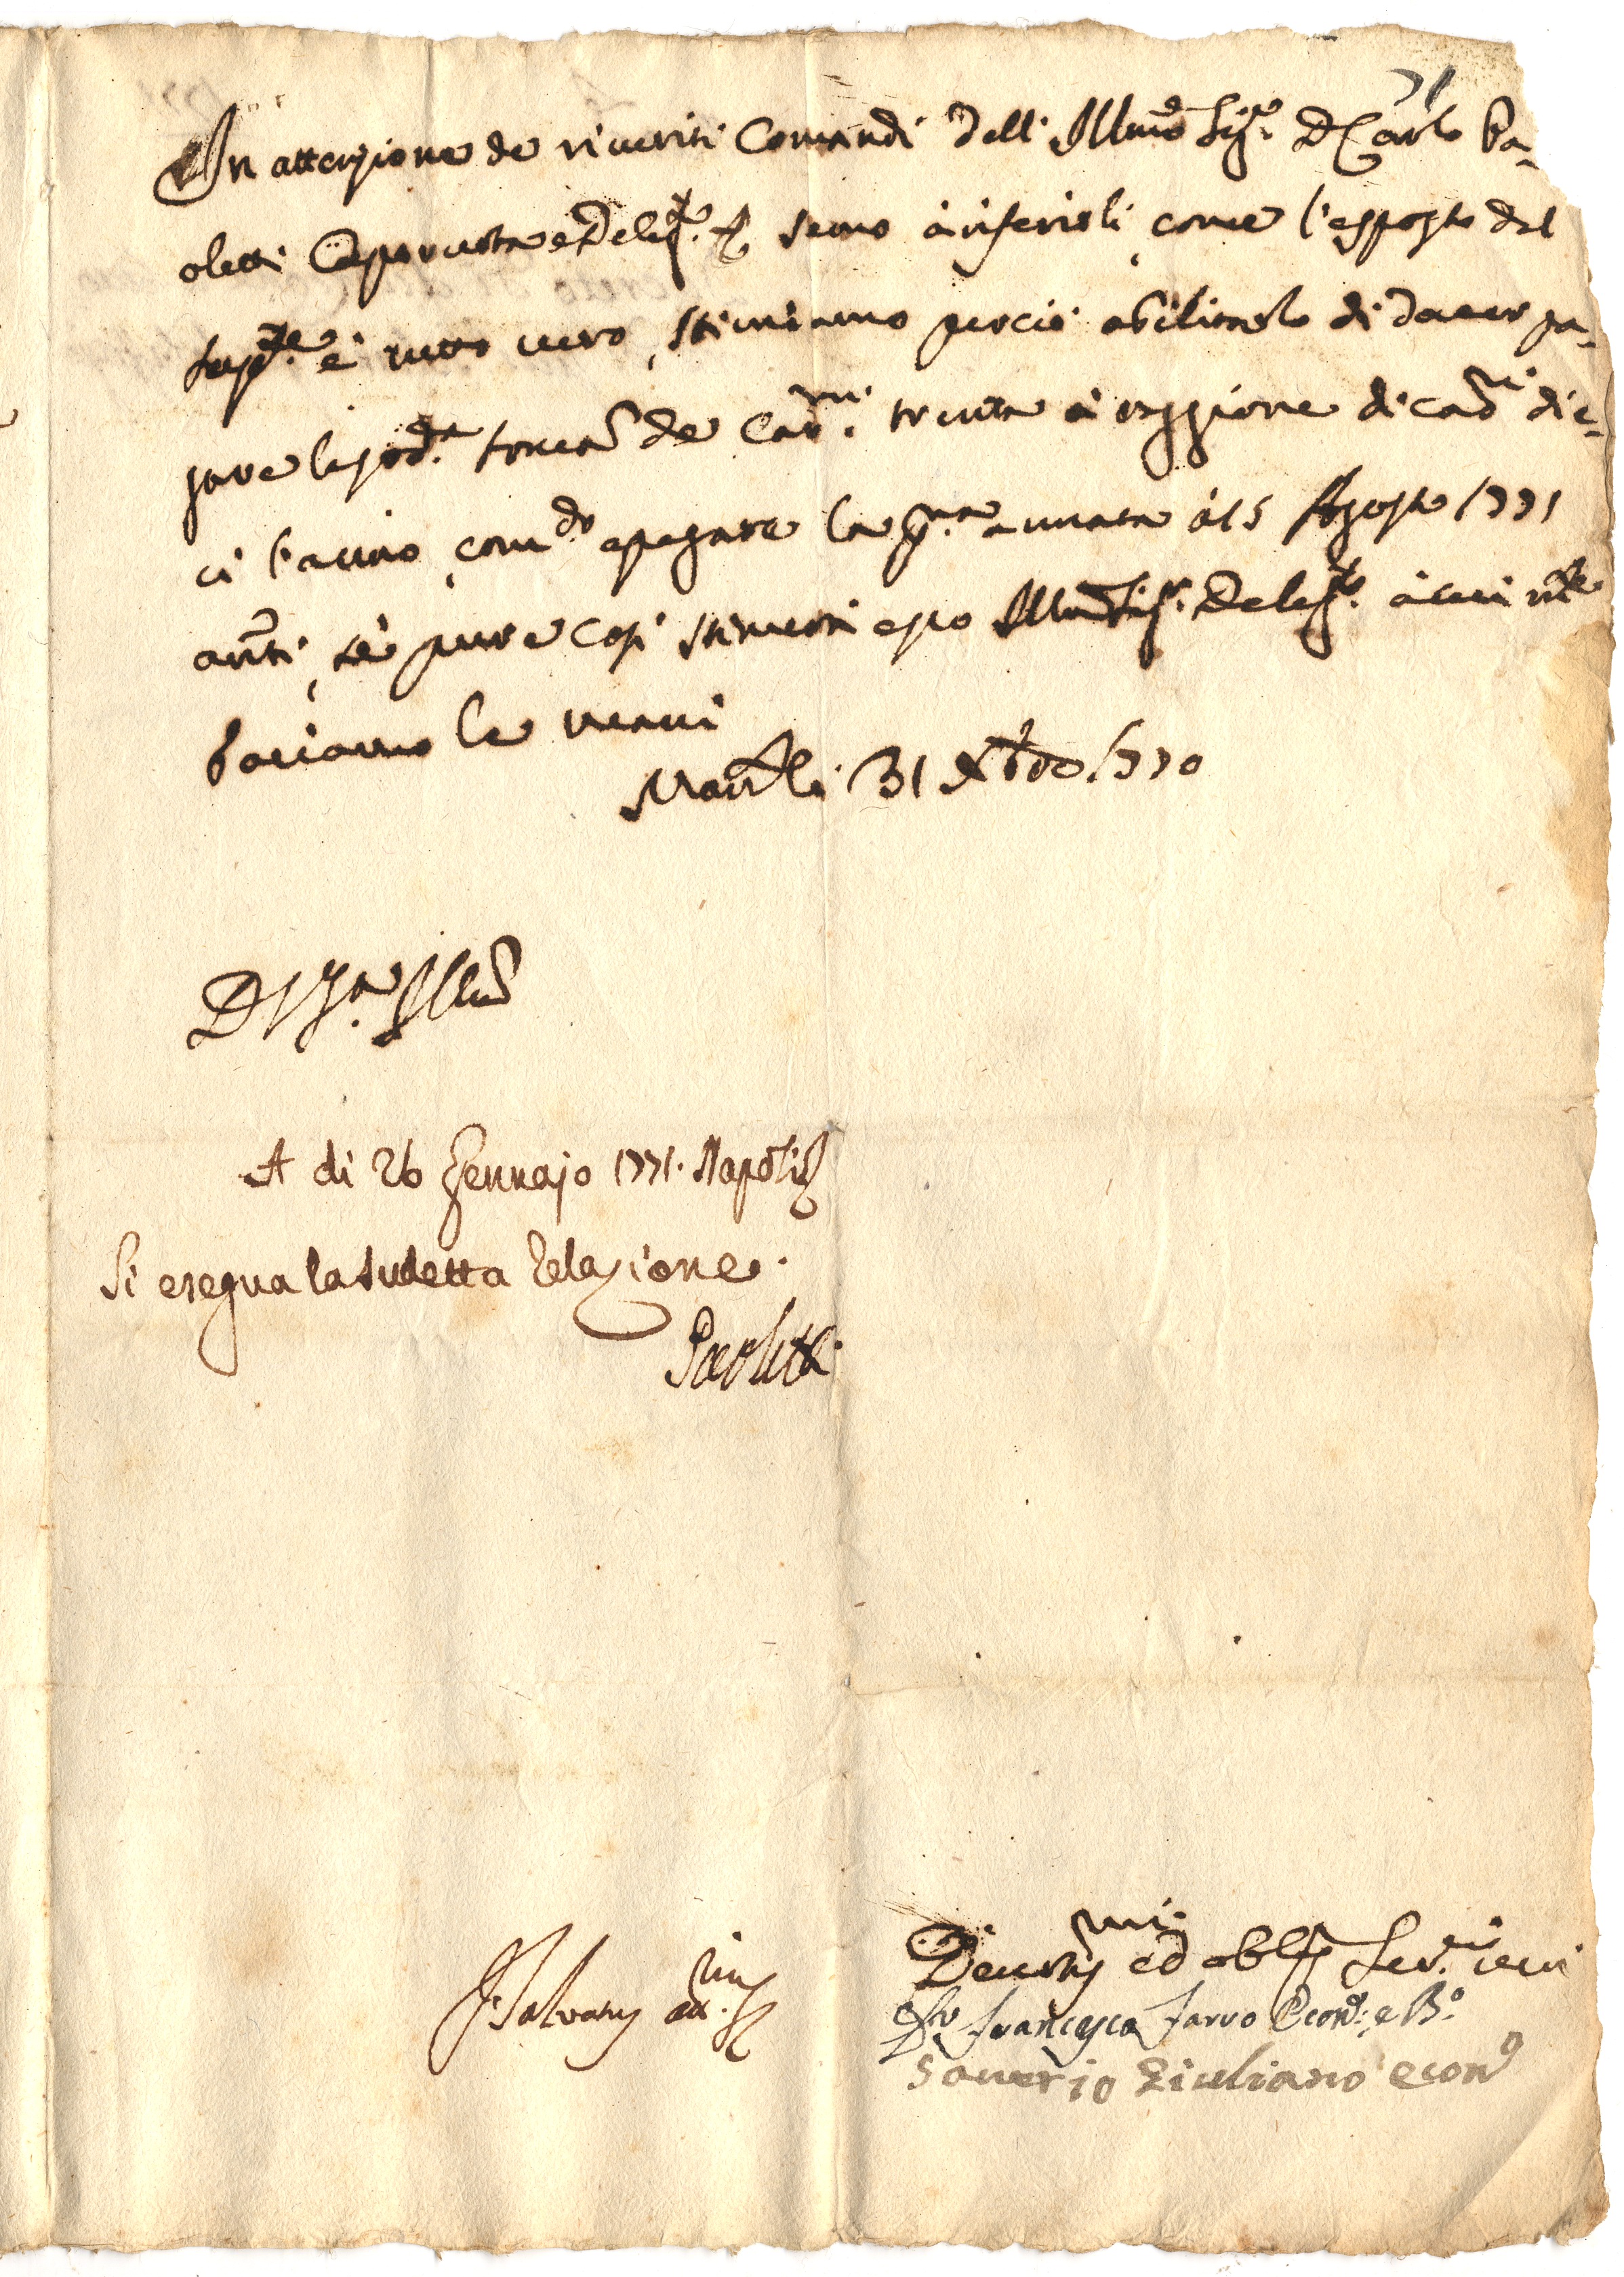 71
In attenzione de riveriti Comandi dell' Illmo Sigr. D. Carlo Pa-
oletti Caporuota e Delegto. semo à riferirli, come l'esposto dal
suppte. è tutto vero, stimiamo perciò abilitarlo di dover pa-
gare la sodda. summa de Carni. trenta à raggione di Carni die-
ci l'anno, comdo. a pagare la pma. annata à 15 Agosto 1771
avnti, sè pure così stimerà esso Illmo Sigr. Delegto. à cui
baciamo le mani
31 Xbre 1770
D V S Illma
A di 26 Gennajo 1771. Napoli
Si esegua la sudetta Relazione.
Paoletti
Devotmi ed obbl Servri veri
Francesco Farro Econ. e
Saverio Giuliano econo